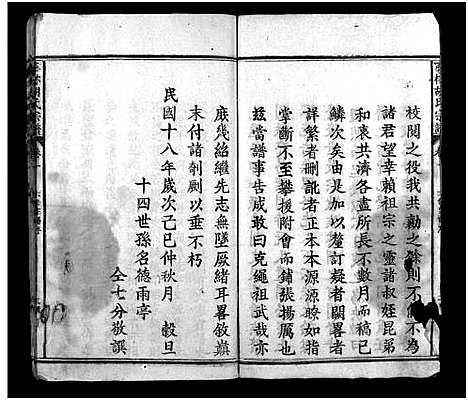 校閱之役我共勷之餘則不能不為
諸君望幸賴祖宗之靈諸叔姪昆弟
和衷共濟各盡所長不數月而稿已
鱗次矣由是加以釐訂疑者闕畧者
詳繁者刪訛者正本本源源瞭如指
掌斷不至攀援附會而鋪張揚厲也
茲當譜事告成敢曰克繩祖武哉亦
庶幾紹繼先志無墜厥緒耳畧敘巔
末付諸剞劂以垂不朽
民國十八年歲次己巳仲秋月 穀旦
十四世孫名德雨亭
仝七分敬譔